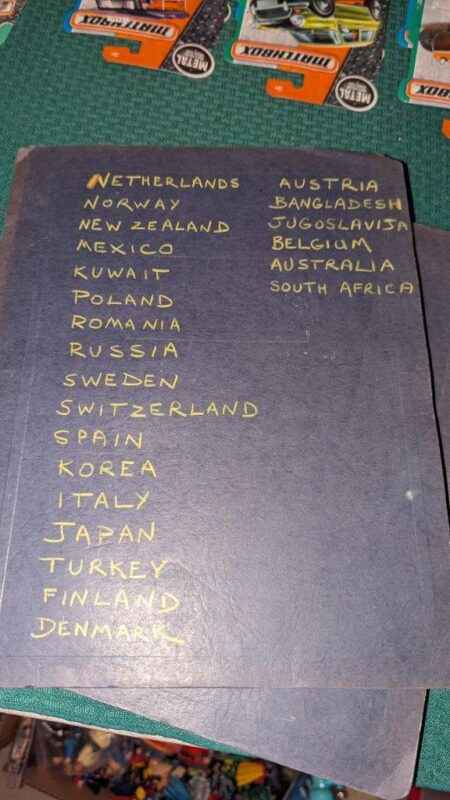 MATCHBOX
METAL
MATCHBOX
METAL
BOX
NETHERLANDS
NORWAY
NEW ZEALAND
MEXICO
KUWAIT
POLAND
ROMANIA
RUSSIA
SWEDEN
SWITZERLAND
SPAIN
KOREA
ITALY
JAPAN
TURKEY
FINLAND
DENMARK
AUSTRIA
BANGLADESH
JUGOSLAVIJA
BELGIUM
AUSTRALIA
SOUTH AFRICA